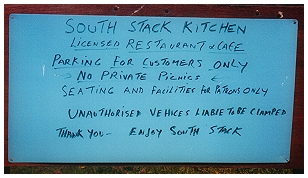 SOUTH STACK KITCHEN
LICENSED RESTAURANT & CAFE
PARKING FOR CUSTOMERS ONLY
NO PRIVATE PICNICS
SEATING AND FACILITIES FOR PATRONS ONLY
UNAUTHORISED VEHICES LIABLE TO BE CLAMPED
THANK YOU - ENJOY SOUTH STACK